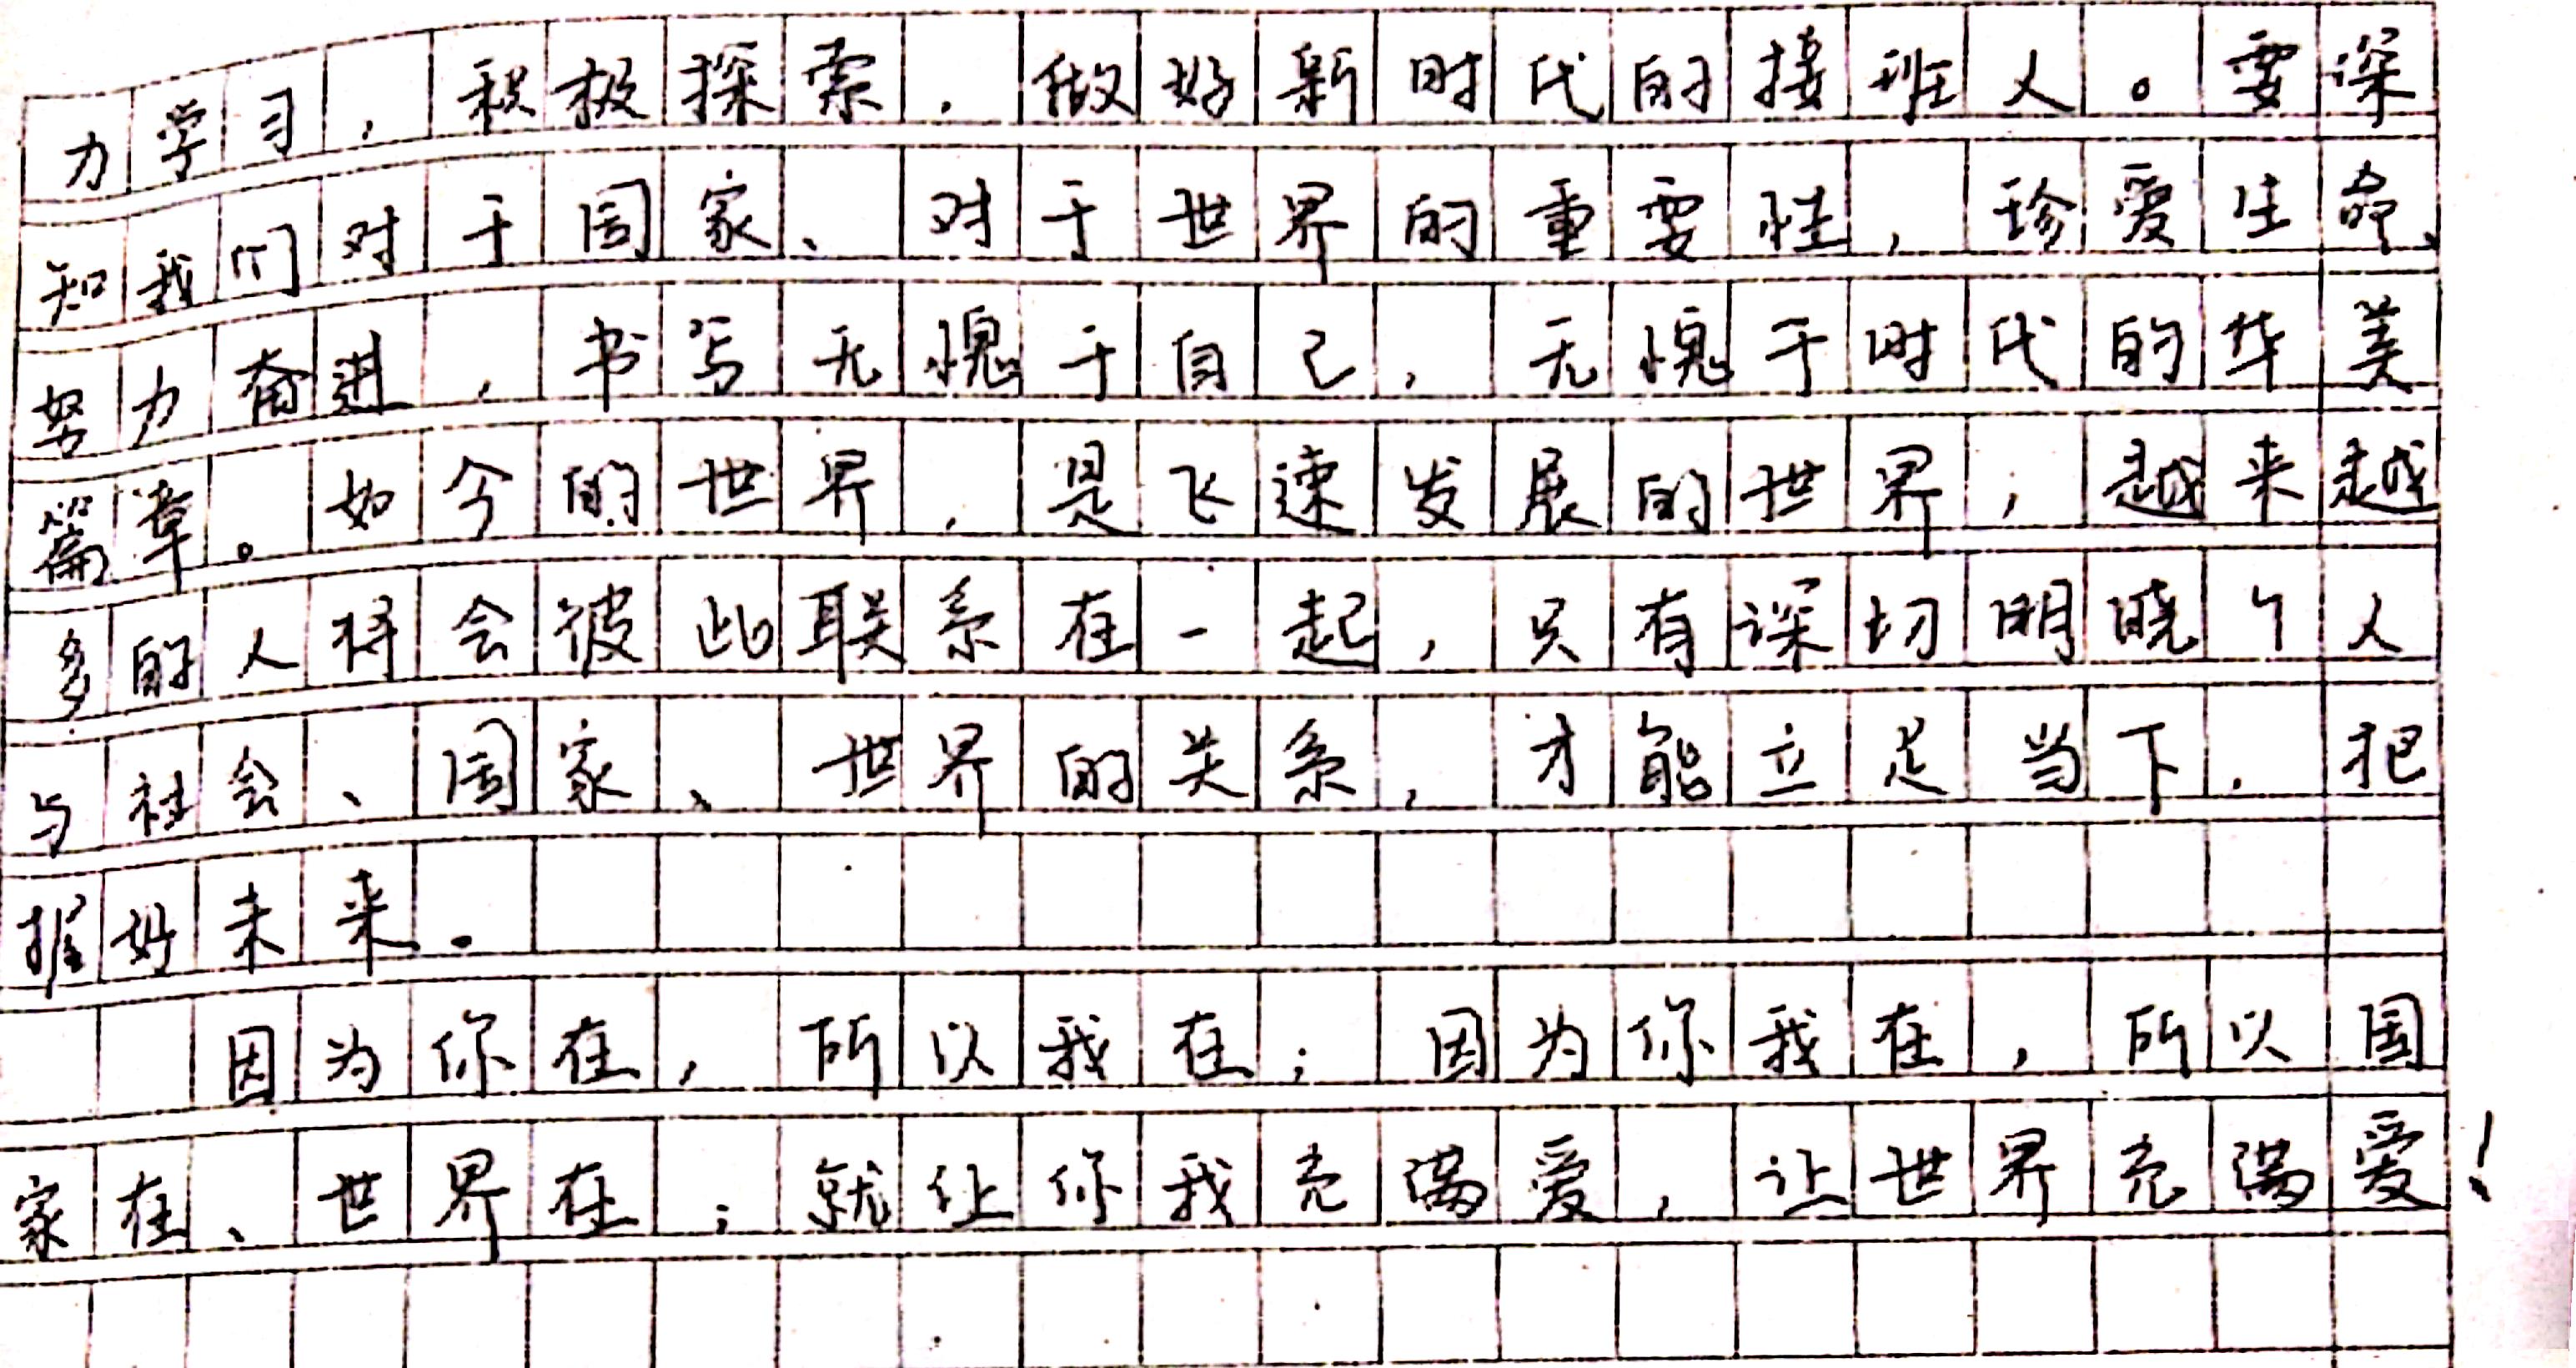 力学习，积极探索，做好新时代的接班人。要深
知我们对于国家、对于世界的重要性，珍爱生命、
努力奋进，书写无愧于自己，无愧于时代的华美
篇章。如今的世界，是飞速发展的世界，越来越
多的人将会彼此联系在一起，只有深切明晓个人
与社会、国家、世界的关系，才能立足当下，把
握好未来。
因为你在，所以我在；因为你我在，所以国
家在、世界在；就让你我充满爱，让世界充满爱！